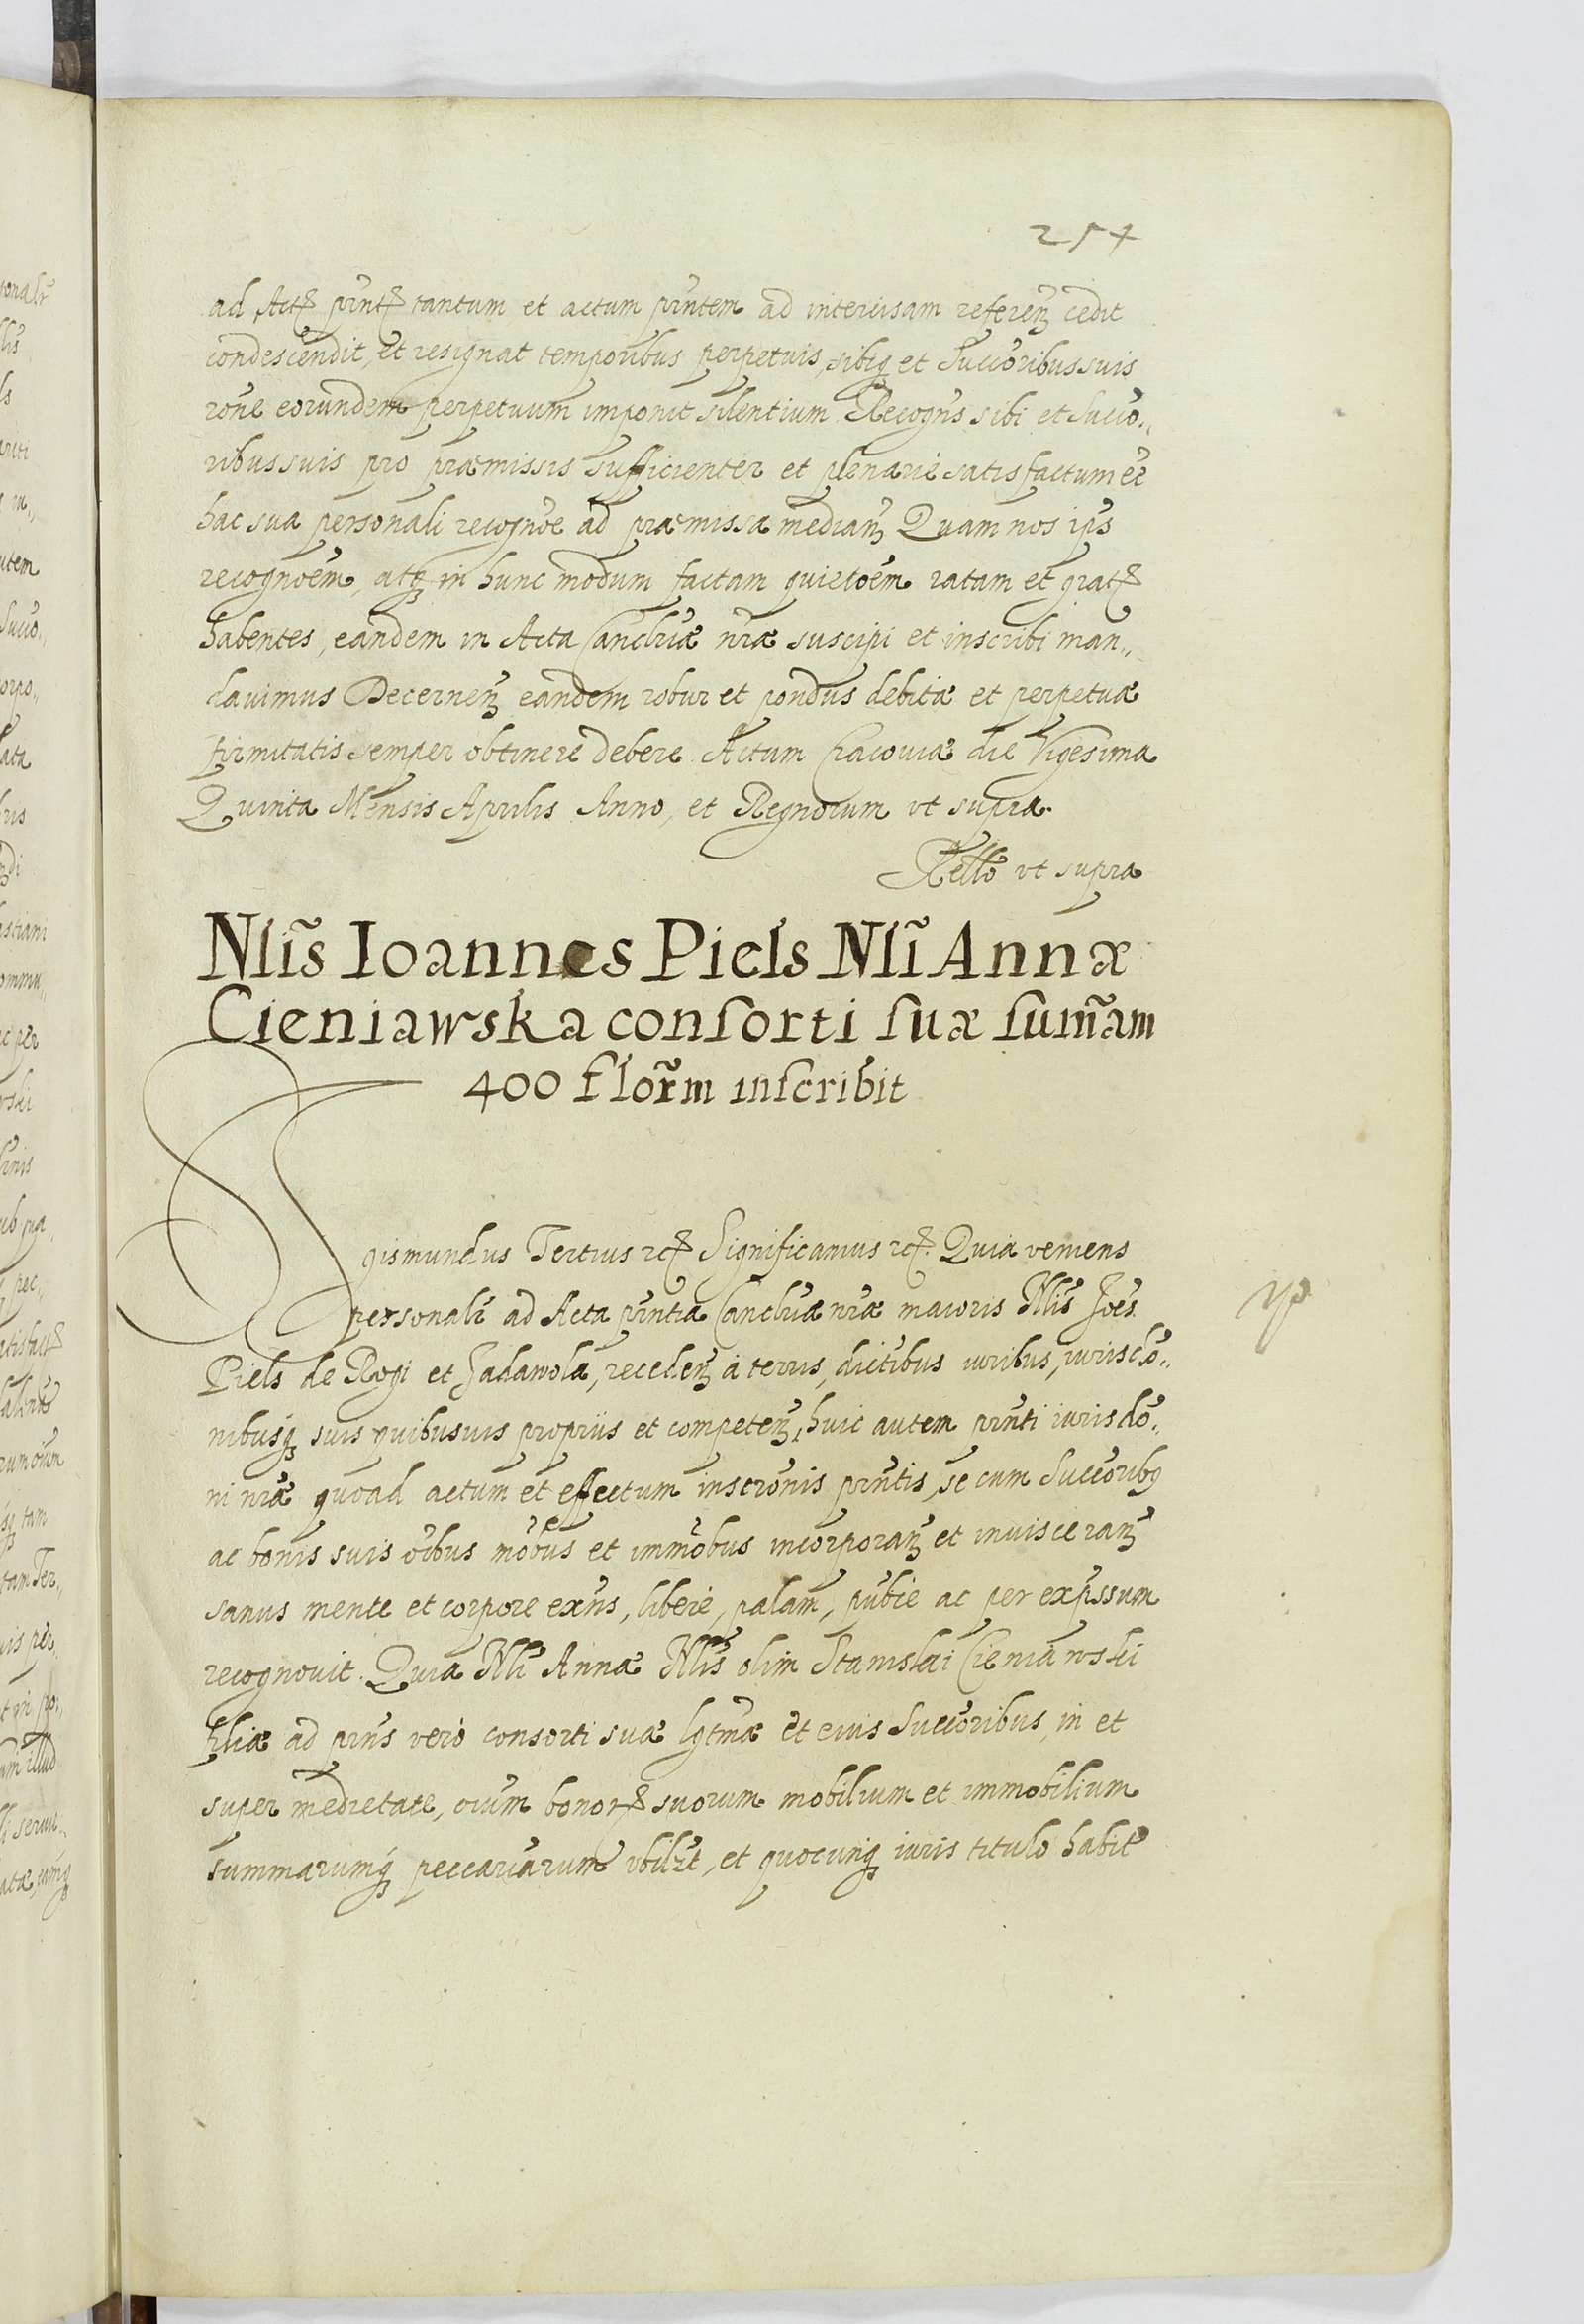 254
ad Actꝝ pn̄tꝝ tantum et actum pn̄tem ad interuisam referen̄ꝫ cedit
condescendit, et resignat temporibus perpetuis, sibiqꝫ et Succōribus suis
rōne eorundem perpetuum imponit silentium Recogn̄s sibi et Succo„
ribus suis pro præmissis sufficienter et plenarie satisfactum eē
hac sua personali recogn̄oe ad præmissa medianꝫ Quam nos ip̄s
recogn̄oem, atqꝫ in hunc modum factam quiet̄oem ratam et gratꝝ
habentes, eandem in Acta Canclr̄iæ nr̄æ suscipi et inscribi man„
dauimus Decernenꝫ eandem robur et pondus debitæ et perpetuæ
firmitatis semper obtinere debere. Actum Cracouiæ die Vigesima
Quinta Mensis Aprilis Anno, et Regnorum vt supra.
Rel̄lo vt supra
Nl̄is Ioannes Piels Nl̄i Annæ
Cieniawska conſorti ſuæ ſum̄am
400 flor̄m inſcribit
gismundus Tertius ꝛcꝝ Significamus ꝛcꝝ. Quia veniens
personalr̄ ad Acta pn̄tia Canclr̄iæ nr̄æ maioris Nl̄is Joēs
Piels de Rogi et Jadawola, recedenꝫ a terris, dictibus iuribus, iurisdō„
nibusqꝫ suis quibusuis propriis et competenꝫ, huic autem pn̄ti iurisdō„
ni nr̄æ quoad actum et effectum inscrōnis pn̄tis, se cum Succōribꝫ
ac bonis suis oībus mōbus et immōbus incorporanꝫ et inuisceranꝫ
sanus mente et corpore exn̄s, libere, palam, pub̄ce ac per exp̄ssum
recognouit. Quia Nl̄i Annæ Nl̄is olim Stanislai Cieniawski
filiæ ad prn̄s vero consorti suæ lgtm̄æ et eius Succōribus, in et
super medietate, oīum bonorꝝ suorum mobilium et immobilium
summarumqꝫ peccariarum vbilꝫt, et quocunqꝫ iuris titulo habit̄